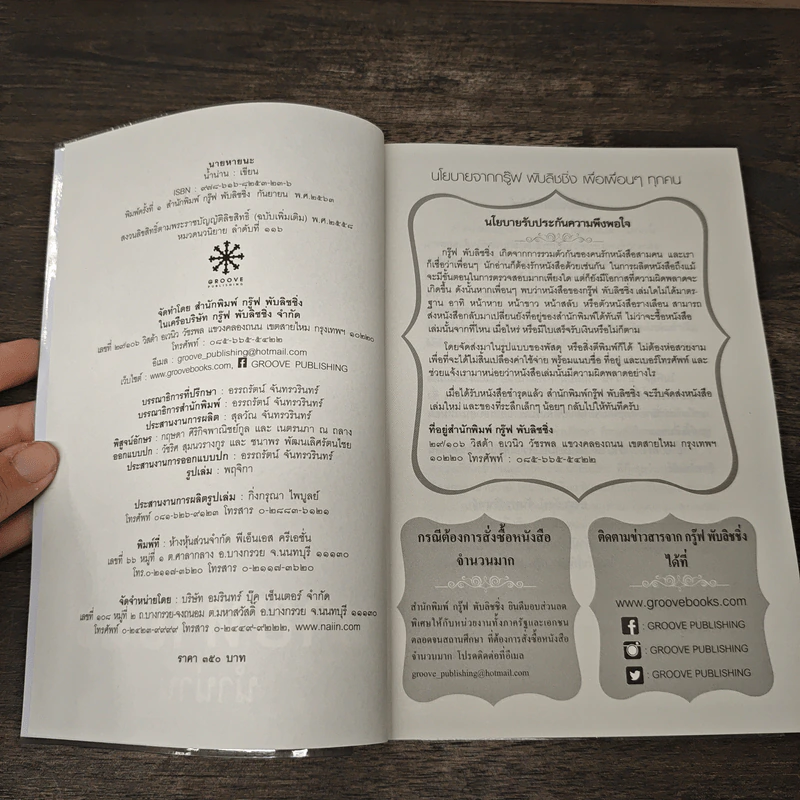 นายหายนะ
น้ำน่าน : เขียน
ISBN : ๙๗๘-๖๑๖-๘๒๕๓-๒๓-๖
พิมพ์ครั้งที่ ๑ สำนักพิมพ์ กรู๊ฟ พับลิชชิ่ง กันยายน พ.ศ.๒๕๖๓
สงวนลิขสิทธิ์ตามพระราชบัญญัติลิขสิทธิ์ (ฉบับเพิ่มเติม) พ.ศ.๒๕๕๘
หมวดนวนิยาย ลำดับที่ ๑๑๖
GROOVE
PUBLISHING
จัดทำโดย สำนักพิมพ์ กรู๊ฟ พับลิชชิ่ง
ในเครือบริษัท กรู๊ฟ พับลิชชิ่ง จำกัด
เลขที่ ๒๙/๑๐๖ วิสต้า อเวนิว วัชรพล แขวงคลองถนน เขตสายไหม กรุงเทพฯ ๑๐๒๒๐
โทรศัพท์ : ๐๘๕-๖๖๕-๕๔๒๒
อีเมล : groove_publishing@hotmail.com
เว็บไซต์ : www.groovebooks.com, GROOVE PUBLISHING
บรรณาธิการที่ปรึกษา : อรรถรัตน์ จันทรวรินทร์
บรรณาธิการสำนักพิมพ์ : อรรถรัตน์ จันทรวรินทร์
ประสานงานการผลิต : สุลวัณ จันทรวรินทร์
พิสูจน์อักษร : กฤษดา ศิริกิจพาณิชย์กูล และ เนตรนภา ณ ถลาง
ออกแบบปก : วัชริศ สุมนวรางกูร และ ชนาพร พัฒนเลิศรัตนไชย
ประสานงานการออกแบบปก : อรรถรัตน์ จันทรวรินทร์
รูปเล่ม : พฤจิกา
ประสานงานการผลิตรูปเล่ม : กิ่งกรุณา ไพบูลย์
โทรศัพท์ ๐๘๑-๖๒๖-๙๑๒๓ โทรสาร ๐-๒๘๘๓-๖๑๒๑
พิมพ์ที่ : ห้างหุ้นส่วนจำกัด พีเอ็นเอส ครีเอชั่น
เลขที่ ๖๖ หมู่ที่ ๑ ต.ศาลากลาง อ.บางกรวย จ.นนทบุรี ๑๑๑๓๐
โทร.๐-๒๑๑๗-๓๖๒๐ โทรสาร ๐-๒๑๑๗-๓๖๒๐
จัดจำหน่ายโดย : บริษัท อมรินทร์ บุ๊ค เซ็นเตอร์ จำกัด
เลขที่ ๑๐๘ หมู่ที่ ๒ ถ.บางกรวย-จงถนอม ต.มหาสวัสดิ์ อ.บางกรวย จ.นนทบุรี ๑๑๑๓๐
โทรศัพท์ ๐-๒๔๒๓-๙๙๙๙ โทรสาร ๐-๒๔๔๙-๙๒๒๒, www.naiin.com
ราคา ๓๕๐ บาท
นโยบายจากกรู๊ฟ พับลิชชิ่ง เพื่อเพื่อนๆ ทุกคน
นโยบายรับประกันความพึงพอใจ
กรู๊ฟ พับลิชชิ่ง เกิดจากการรวมตัวกันของคนรักหนังสือสามคน และเรา
ก็เชื่อว่าเพื่อนๆ นักอ่านก็ต้องรักหนังสือด้วยเช่นกัน ในการผลิตหนังสือถึงแม้
จะมีขั้นตอนในการตรวจสอบมากเพียงใด แต่ก็ยังมีโอกาสที่ความผิดพลาดจะ
เกิดขึ้น ดังนั้นหากเพื่อนๆ พบว่าหนังสือของกรู๊ฟ พับลิชชิ่ง เล่มใดไม่ได้มาตร-
ฐาน อาทิ หน้าหาย หน้าขาว หน้าสลับ หรือตัวหนังสือรางเลือน สามารถ
ส่งหนังสือกลับมาเปลี่ยนยังที่อยู่ของสำนักพิมพ์ได้ทันที ไม่ว่าจะซื้อหนังสือ
เล่มนั้นจากที่ไหน เมื่อไหร่ หรือมีใบเสร็จรับเงินหรือไม่ก็ตาม
โดยจัดส่งมาในรูปแบบของพัสดุ หรือสิ่งตีพิมพ์ก็ได้ ไม่ต้องห่อสวยงาม
เพื่อที่จะได้ไม่สิ้นเปลืองค่าใช้จ่าย พร้อมแนบชื่อ ที่อยู่ และเบอร์โทรศัพท์ และ
ช่วยแจ้งเรามาหน่อยว่าหนังสือเล่มนั้นมีความผิดพลาดอย่างไร
เมื่อได้รับหนังสือชำรุดแล้ว สำนักพิมพ์กรู๊ฟ พับลิชชิ่ง จะรีบจัดส่งหนังสือ
เล่มใหม่ และของที่ระลึกเล็กๆ น้อยๆ กลับไปให้ทันทีครับ
ที่อยู่สำนักพิมพ์ กรู๊ฟ พับลิชชิ่ง
๒๙/๑๐๖ วิสต้า อเวนิว วัชรพล แขวงคลองถนน เขตสายไหม กรุงเทพฯ
๑๐๒๒๐ โทรศัพท์ : ๐๘๕-๖๖๕-๕๔๒๒
กรณีต้องการสั่งซื้อหนังสือ
จำนวนมาก
สำนักพิมพ์ กรู๊ฟ พับลิชชิ่ง ยินดีมอบส่วนลด
พิเศษให้กับหน่วยงานทั้งภาครัฐและเอกชน
ตลอดจนสถานศึกษา ที่ต้องการสั่งซื้อหนังสือ
จำนวนมาก โปรดติดต่อที่อีเมล
groove_publishing@hotmail.com
ติดตามข่าวสารจาก กรู๊ฟ พับลิชชิ่ง
ได้ที่
www.groovebooks.com
: GROOVE PUBLISHING
: GROOVE PUBLISHING
: GROOVE PUBLISHING